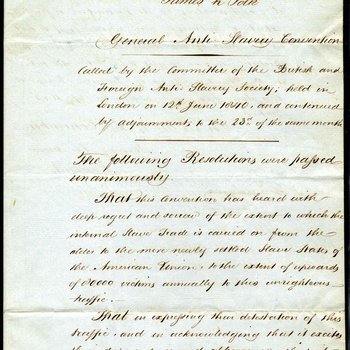 James K Polk
General Anti Slavery Convention
Called by the Committee of the British and
Foreign Anti Slavery Society; held in
London on 12th June 1840. and continued
by adjournments to the 23rd of the same month
The following Resolutions were passed
unanimously.
That this Convention has heard with
deep regret and sorrow of the extent to which the
internal Slave Trade is carried on from the
older to the more newly settled Slave States of
the American Union; to the extent of upwards
of 80000 victims annually to this unrighteous
traffic.
That in expressing their detestation of this
traffic, and in acknowledging that it excites